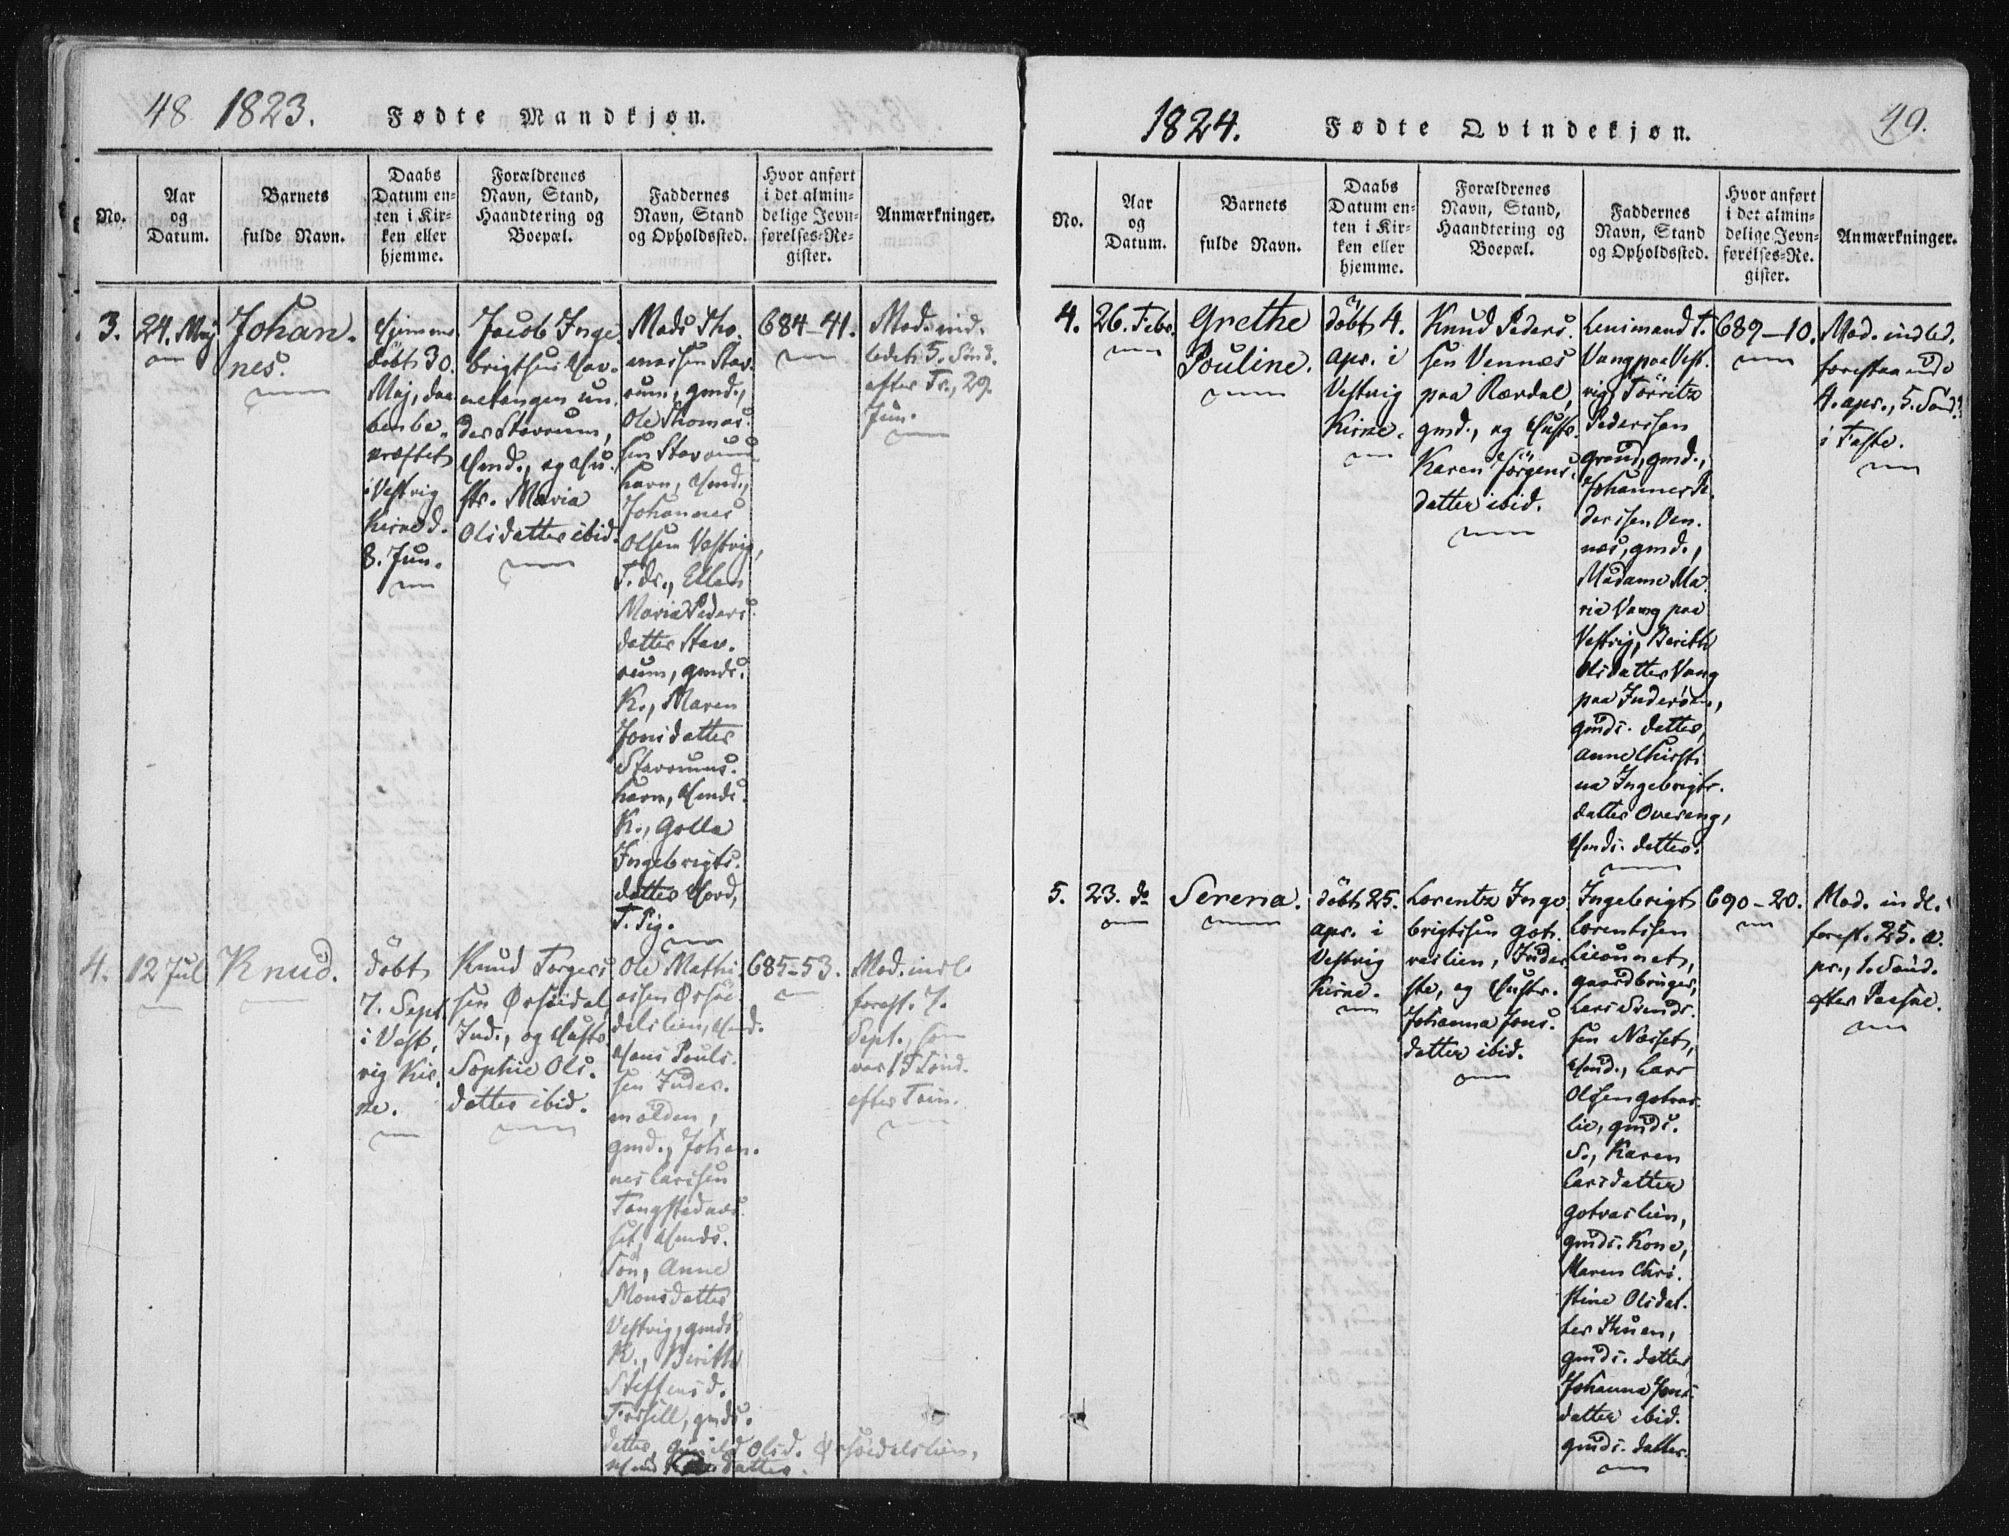 48 1823. Fødte Mandkjøn.
No.
Aar
og
Datum.
Barnets
fulde Navn.
Daabs
Datum en-
ten i Kir-
ken eller
hjemme.
Forældrenes
Navn, Stand,
Haandtering og
Boepæl.
Faddernes
Navn, Stand
og Opholdssted.
Hvor anført
i det almin-
delige Jevn-
førelses-Re-
gister.
Anmærkninger.
3.
24. Maj
Johan-
nes.
Hjemme
døbt 30.
Maj, daa-
ben be-
kræftet
i Vestvig
Kirke d.
8. Jun.
Jacob Inge-
brigtsen
un-
der Stavrum,
Hmd., og Hu-
str. Maria
Olsdatter ibid.
Mads Tho-
massen Stav-
rum, gmd.,
Ole Thomas-
sen Stavrum-
havn, Hmd.,
Johannes
Olsen Vestvig,
T. dr., Ellen
Maria Peders-
datter Stav-
rum, gmds.
K., Maren
Jonsdatter
Stavrums-
havn, Hmds.
K., Golla
Ingebrigts-
datter
T. Pig.
684-41.
Mod. ind-
ledet 5. Sønd.
efter Tr., 29.
Jun.
4.
12 Jul
Knud.
døbt
7. Sept.
i Vest-
vig Kir-
ke.
Knud Torgers-
sen Ørsjødal,
Ind., og Hustr.
Sophie Ols-
datter ibid.
Ole Mathi-
assen Ørsjø-
dalslien, Hmd.
Hans Pouls-
sen Inder-
molden,
gmd., Johan-
nes Larssen
Tangstadnæs-
set, Hmds.
Søn, Anne
Monsdatter
Vestvig, gmds.
K., Berith
Steffensd.
gmds.
datter, Gunild Olsd. Ørsjødalslien,
Hmds datter.
685-53.
Mod. indl.
forest. 7.
Sept., som
var 15 Sønd.
efter Trin.
1824. Fødte Qvindekjøn. 49.
No.
Aar
og
Datum.
Barnets
fulde Navn.
Daabs
Datum en-
ten i Kir-
ken eller
hjemme.
Forældrenes
Navn, Stand,
Haandtering og
Boepæl.
Faddernes
Navn, Stand
og Opholdssted.
Hvor anført
i det almin-
delige Jevn-
førelses-Re-
gister.
Anmærkninger.
4.
26. Febr.
Grethe
Pouline.
døbt 4.
apr. i
Vestvig
Kirke.
Knud Peders-
sen Vennes
paa Rærdal,
gmd., og Hustr.
Karen Jørgens-
datter ibid.
Lensmand T.
Vang paa Vest-
vig, Törritz
Pederssen
gmd.,
Johannes Pe-
derssen Ven-
nes, gmd.,
Madame Ma-
ria Vang paa
Vestvig, Berith
Olsdatter Vang
paa Inderøen,
gmds. datter,
Anne Christi-
na Ingebrigts-
datter Overeng,
Hmds. datter.
689-10.
Mod. indled.
forestaaende
4. apr., 5. Sønd.
i Faste.
5.
23. do
Serena.
døbt 25.
apr. i
Vestvig
Kirke.
Lorentz Inge-
brigtssen Got-
vaslien, Inder-
ste, og Hustr.
Johanna Jons-
datter ibid.
Ingebrigt
Lorentssen
gaardbruger,
Lars Svends-
sen Næsset,
Hmd., Lars
Olssen Gotvas-
lie, gmds.
S., Karen
Larsdatter
Gotvaslien,
gmds. Kone,
Maren Chri-
stine Olsdat-
ter
gmds. datter
Johanna Jons-
datter ibid.
gmds. datter.
690-20.
Mod. indl.
forest. 25. a-
pr., 1. Sønd.
efter Paaske.